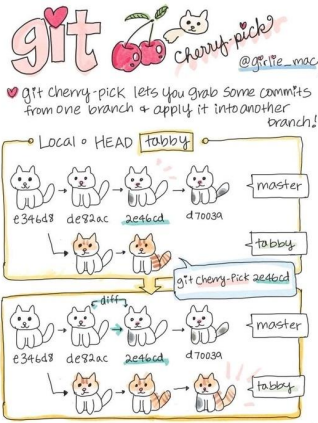 git cherry-pick
@girlie_mac
git cherry-pick lets you grab some commits
from one branch & apply it into another
branch!
Local HEAD tabby
master
e346d8 de82ac 2e46cd d7003a
tabby
git cherry-pick 2e46cd
diff
master
e346d8 de82ac 2e46cd d7003a
tabby